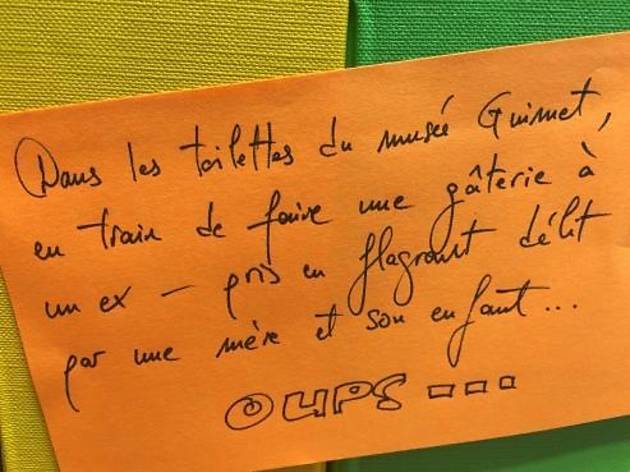 Dans les toilettes du musée Guimet,
en train de faire une gâterie à
un ex – pris en flagrant délit
par une mère et son enfant...
OUPS...